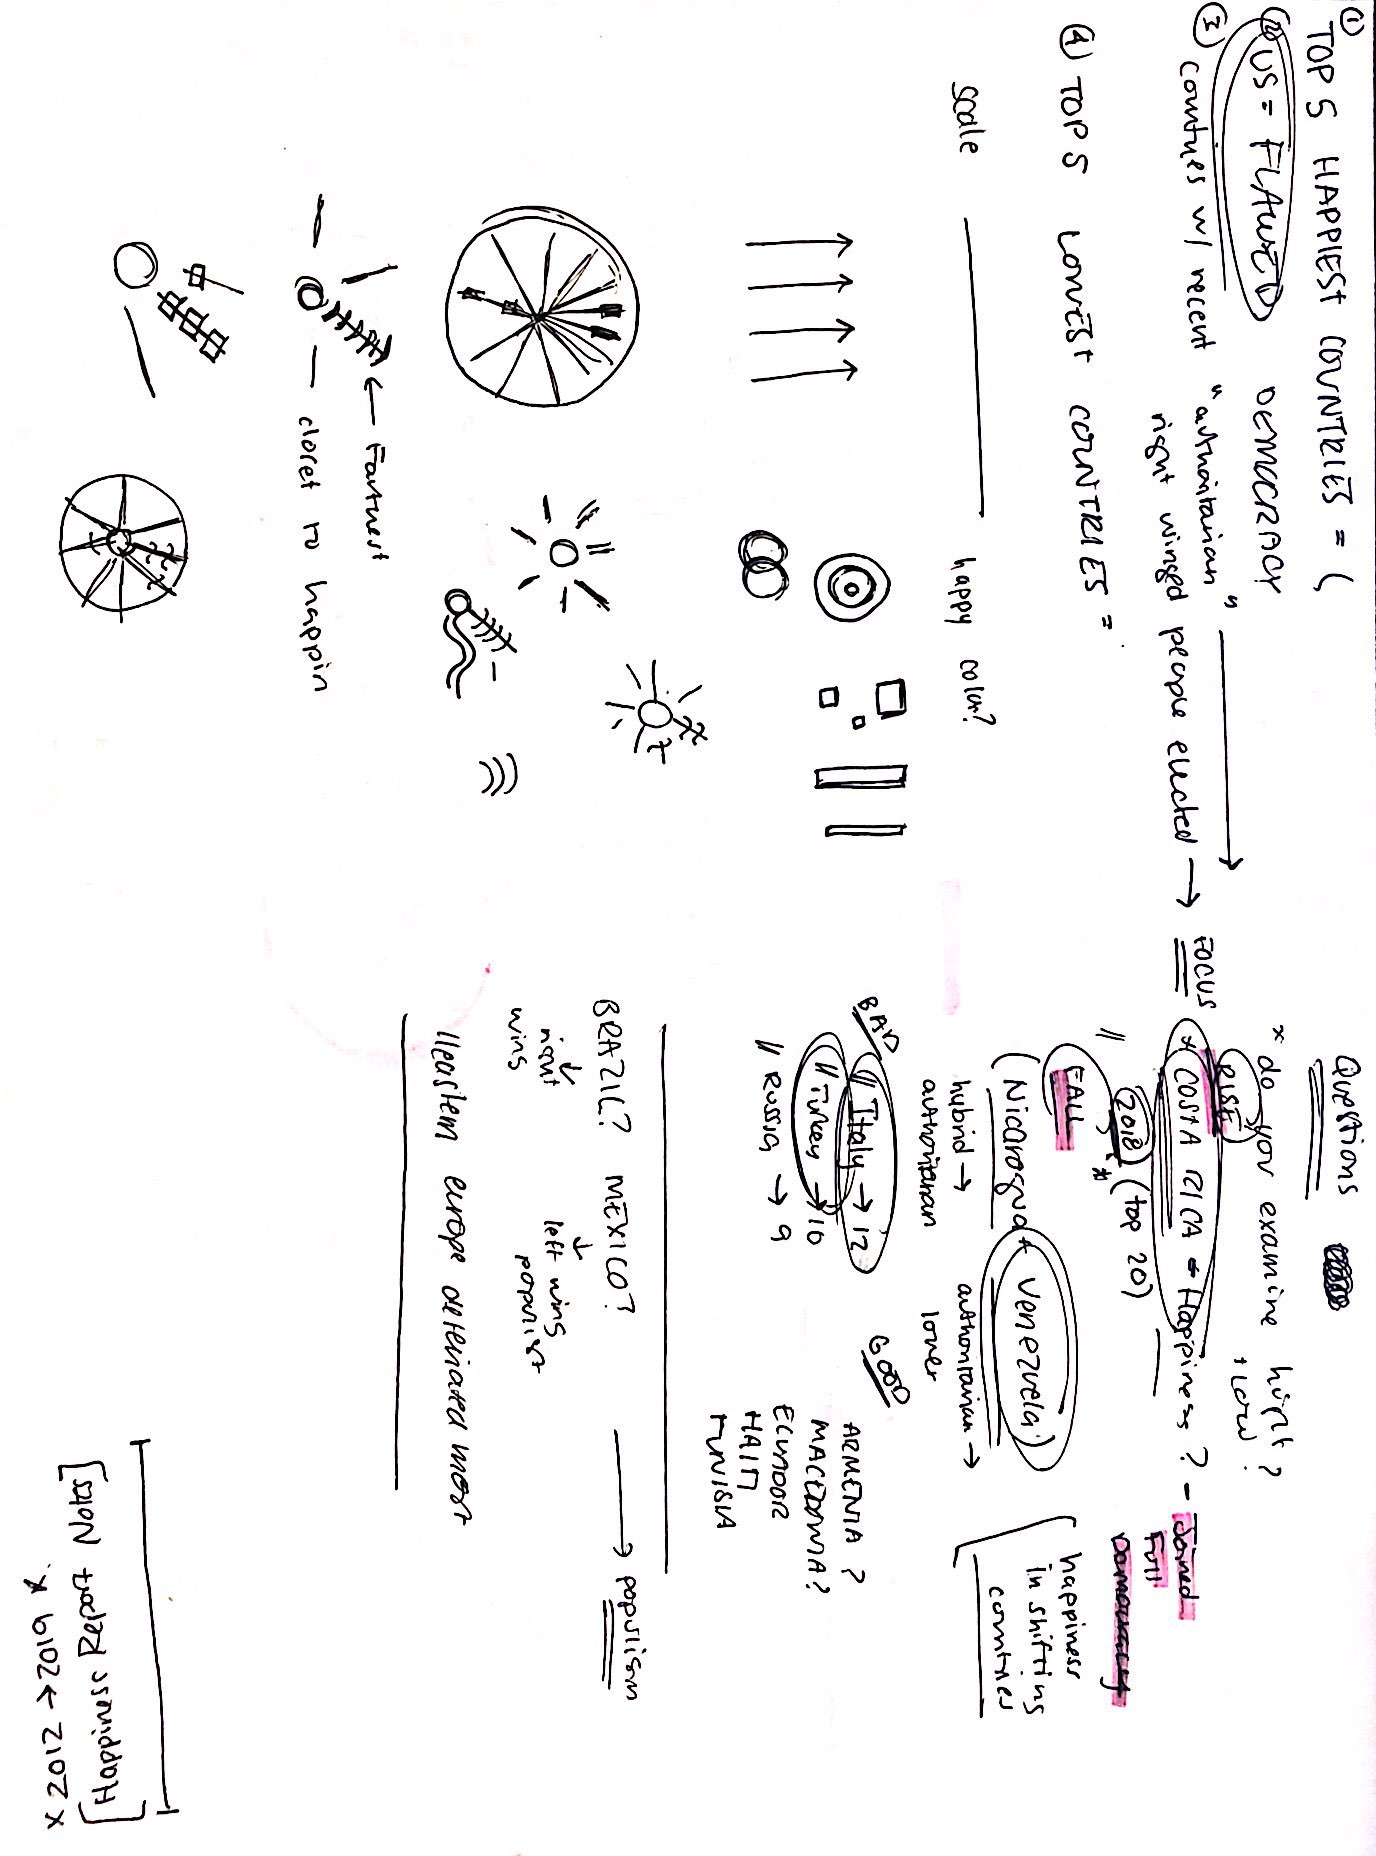 ① TOP 5 HAPPIEST COUNTRIES = (
② US = FLAWED DEMOCRACY
③ countries w/ recent "authoritarian"
right winged people elected → FOCUS
④ TOP 5 LOWEST COUNTRIES =
scale
happy color?
← Fartherst
— closet to happin
Questions
* do you examine hight?
+ low?
RISE
* COSTA RICA → Happiness? - Joined
Full
Democracy
2018 * (top 20)
" FALL
(Nicaragua + Venezuela)
hybrid → authoritarian
authoritarian → lower
happiness
in shifting
countries
BAD
" Italy → 12
" Turkey → 10
" Russia → 9
GOOD
ARMENIA?
MACEDONIA?
ECUADOR
HAITI
TUNISIA
BRAZIL? MEXICO? → populism
↓ right wins
↓ left wing populist
" eastern europe deteriated most
[Happiness Report Notes]
x 2012 → 2019 *